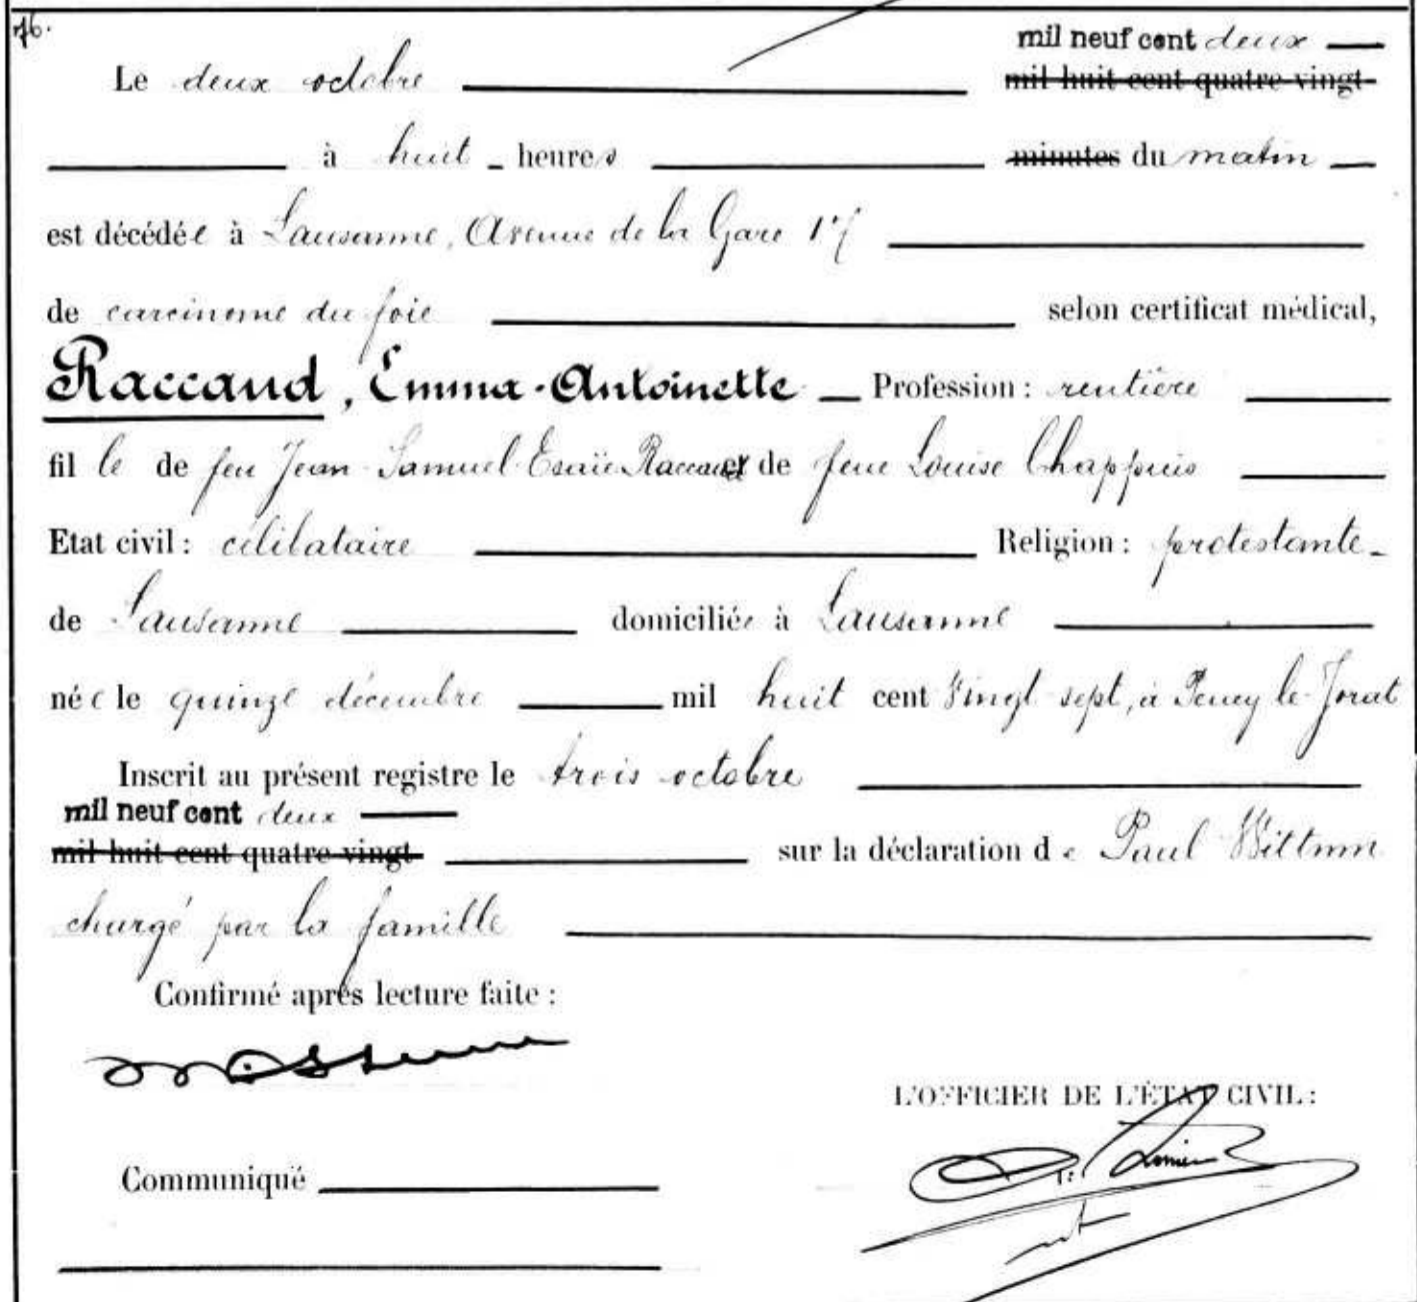 76.
mil neuf cent deux
Le deux octobre mil huit cent quatre-vingt-
à huit heures minutes du matin
est décédée à Lausanne, Avenue de la Gare 17
de carcinome du foie selon certificat médical,
Raccaud, Emma-Antoinette Profession: rentière
fille de feu Jean-Samuel-Esaïe Raccaud et de feue Louise Chappuis
Etat civil: célibataire Religion: protestante
de Lausanne domiciliée à Lausanne
née le quinze décembre mil huit cent vingt-sept, à Peney le Jorat
Inscrit au présent registre le trois octobre
mil neuf cent deux
mil huit cent quatre-vingt- sur la déclaration de Paul
chargé par la famille
Confirmé après lecture faite:
L'OFFICIER DE L'ÉTAT CIVIL:
Communiqué